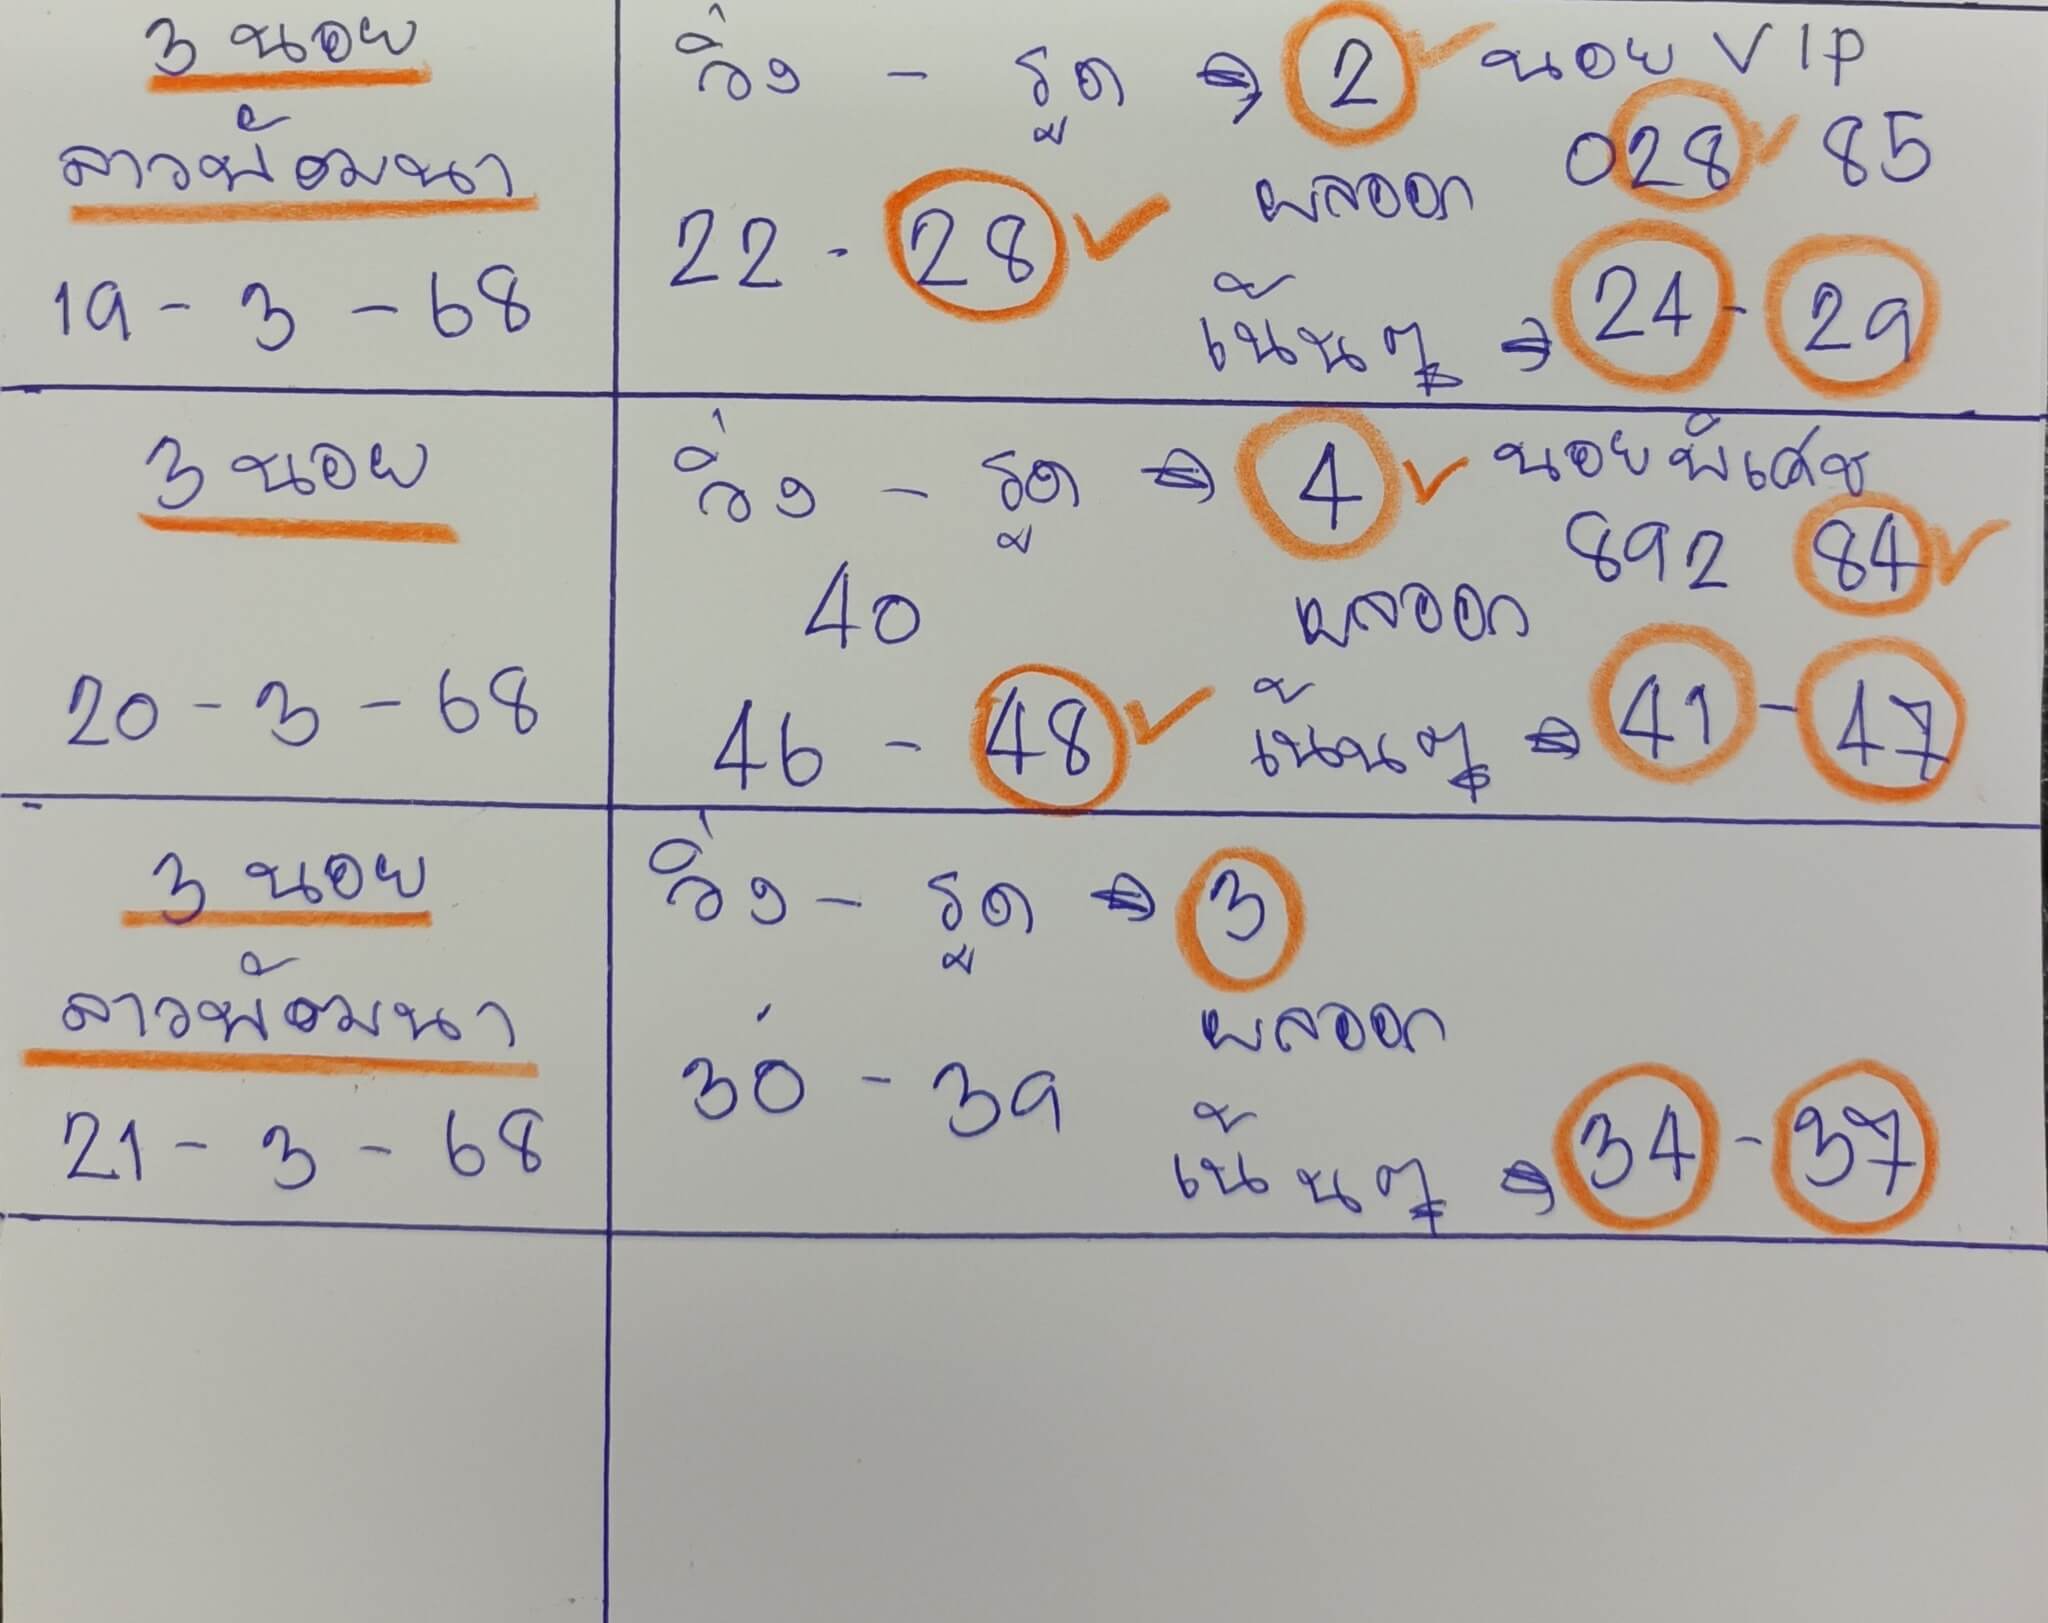 3 นอย
ลาวพัฒนา
19 - 3 - 68
วิ่ง - รูด → 2 ✓ นอย VIP
ผลออก 028 ✓ 85
22 - 28 ✓
เน้นๆ → 24 - 29
3 นอย
20 - 3 - 68
วิ่ง - รูด → 4 ✓ นอยพิเศษ
892 84 ✓
40 ผลออก
46 - 48 ✓ เน้นๆ → 41 - 47
3 นอย
ลาวพัฒนา
21 - 3 - 68
วิ่ง - รูด → 3
ผลออก
30 - 39
เน้นๆ → 34 - 37